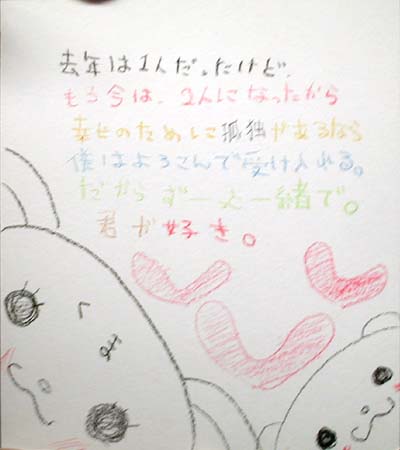 去年は1人だったけど、
もう今は、2人になったから
幸せのために孤独があるなら
僕はよろこんで受け入れる。
だからずーと一緒で。
君が好き。